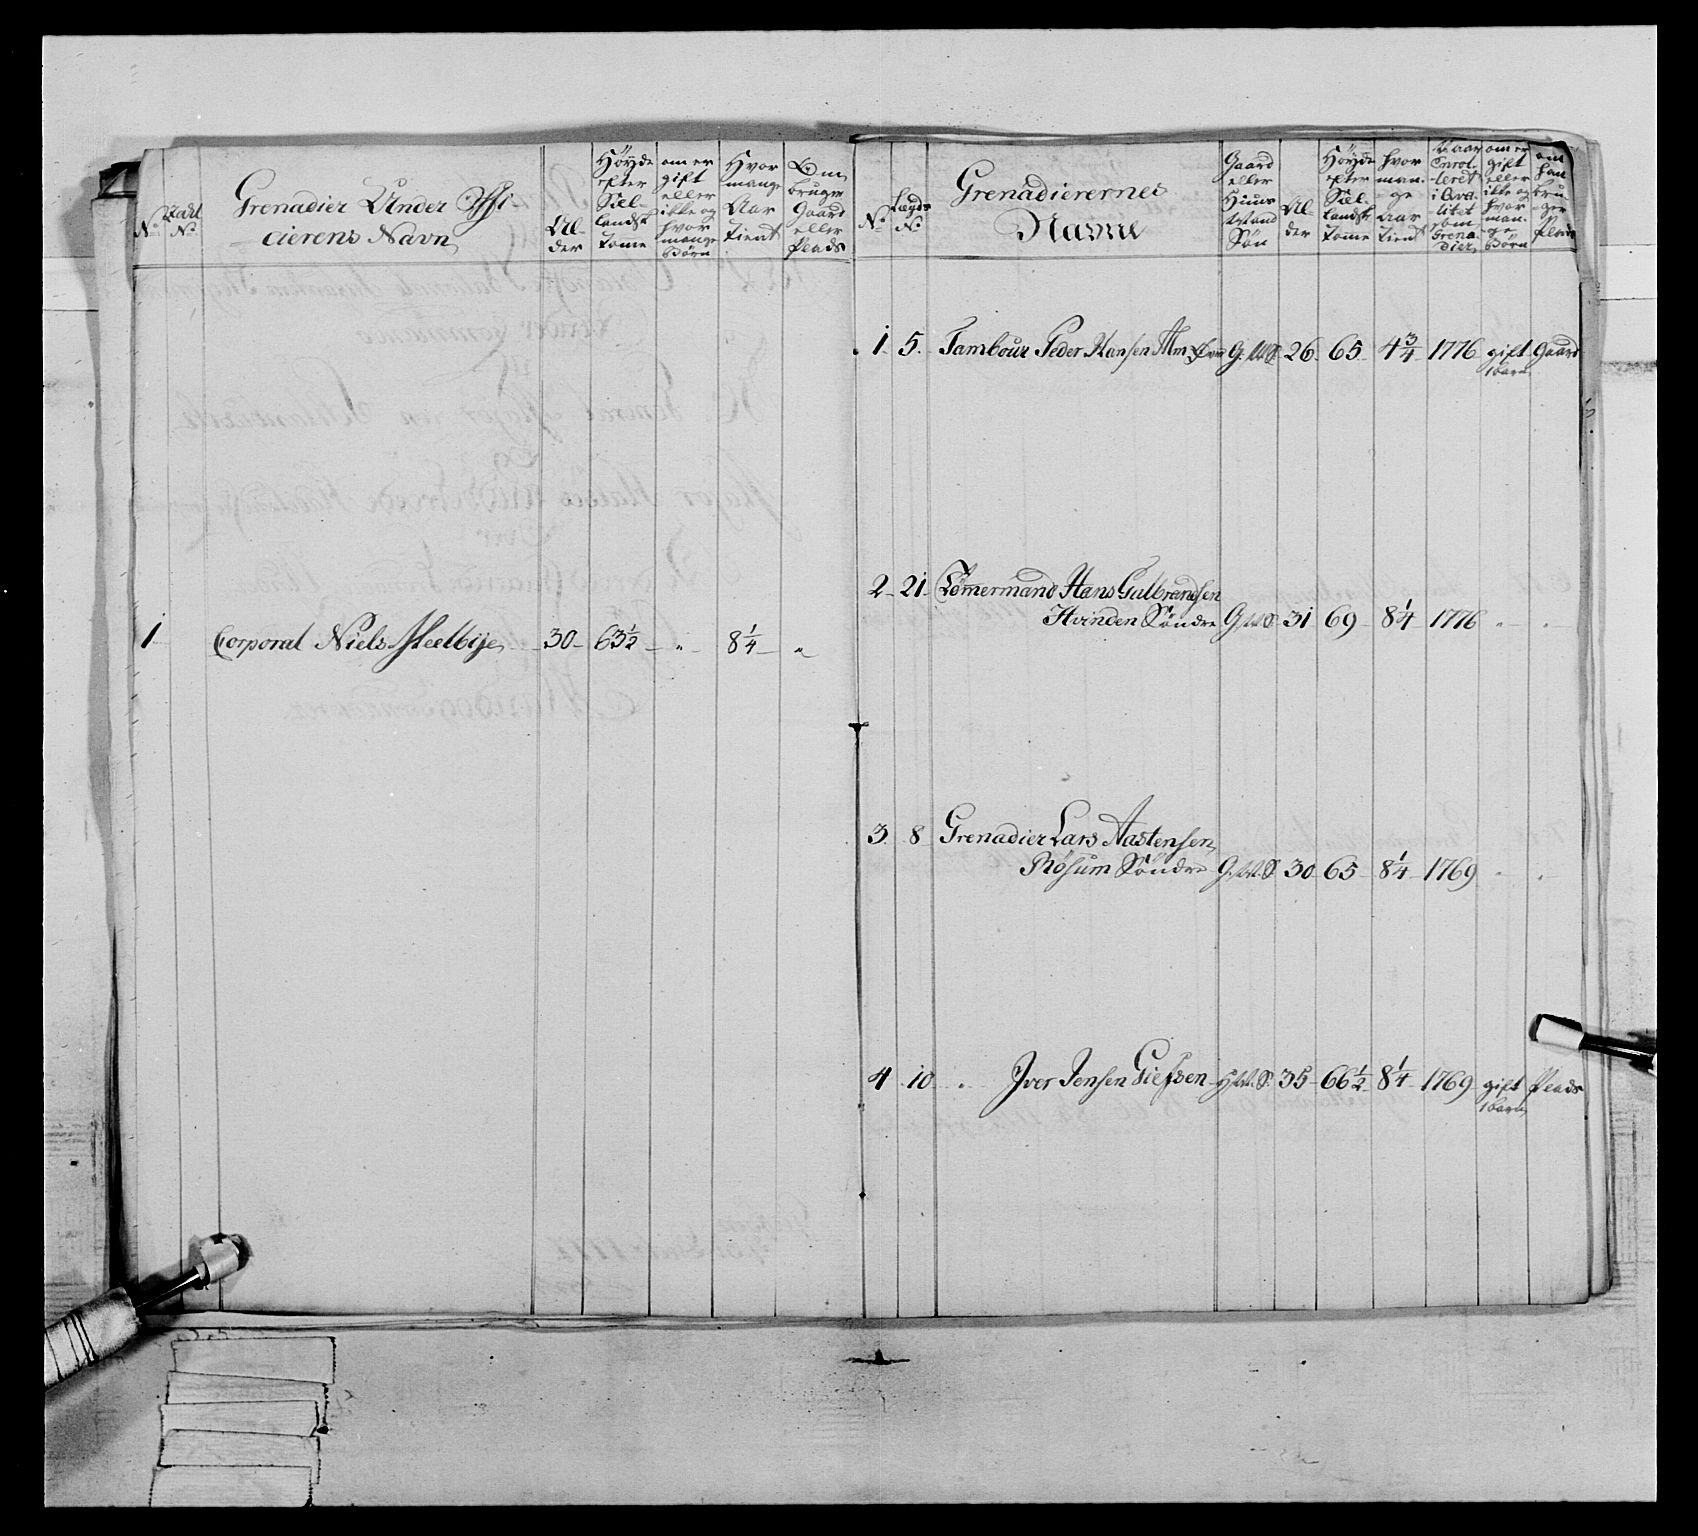 No
Grenadier Under Offi
cierens Navn
Al-
der
Høyde
efter
Siel-
landsk
Tomme
om er
gift
eller
ikke og
hvor
mange
Børn
Hvor
mange
Aar
tient
Om
bruger
Gaard
eller
Plads
1 Corporal Niels 30 63½ " 8¼ "
No
Lægds
No
Grenadierernes
Navne
Gaard
eller
Huus
Mand
Søn
Al-
der
Høyde
efter
Siel-
landsk
Tomme
hvor
man-
ge
Aar
tient
Naar
Enrol-
leret
i Qva-
litet
som
Grena-
dier
om er
gift
eller
ikke og
hvor
man-
ge
Børn
om
han
bru-
ger
Plads
1 5 Tambour Peder Hansen G: M S 26 65 4¾ 1776 gift Gaard
1 barn
2 21 Tømmermand Hans Gulbrandsen
Hvinden Søndre G: M S 31 69 8¼ 1776 " "
3 8 Grenadier Lars Aastensen
Røsum Søndre G: M. S 30 65 8¼ 1769 " "
4 10 " Iver Jensen H: M. S. 35 66½ 8¼ 1769 gift Plads
1 barn